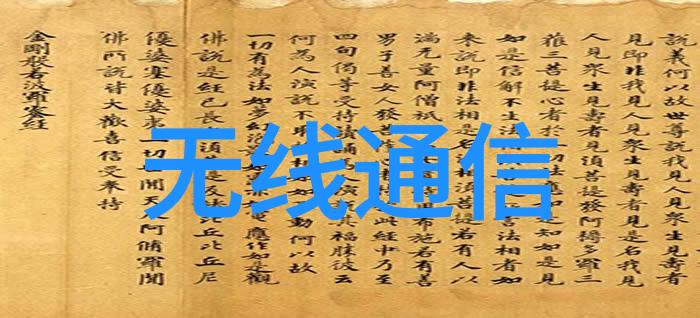 說義何以故世尊說我見人見眾生見壽者
見即非我見人見眾生見壽者見是名我見
人見眾生見壽者見須菩提發阿耨多羅三
藐三菩提心者於一切法應如是知如是見
如是信解不生法相言法相者如
來說即非法相是名法相須菩提若有人以
滿无量阿僧祇布施若有善
男子善女人發菩此經乃至
四句偈等受持讀誦演其福勝彼云
何為人演說不取動何以故
一切有為法如夢幻電應作如是觀
佛說是經已長老須菩提及諸比丘比丘尼
優婆塞優婆夷一切世間天人阿脩羅聞
佛所說皆大歡喜信受奉持
金剛般若波羅蜜經
无线通信